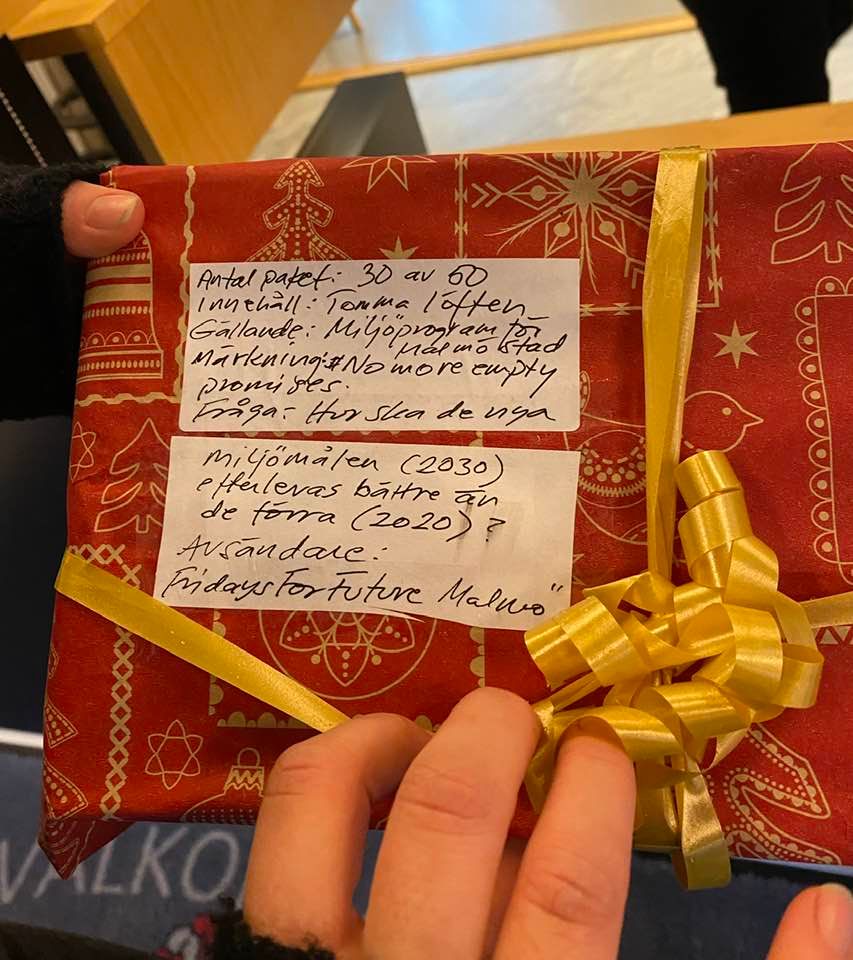 Antal paket: 30 av 60
Innehåll: Tomma löften
Gällande: Miljöprogram för
Malmö stad
Märkning: #No more empty
promises.
Fråga: Hur ska de nya
miljömålen (2030)
efterlevas bättre än
de förra (2020)?
Avsändare:
FridaysForFuture Malmö"
VÄLKO